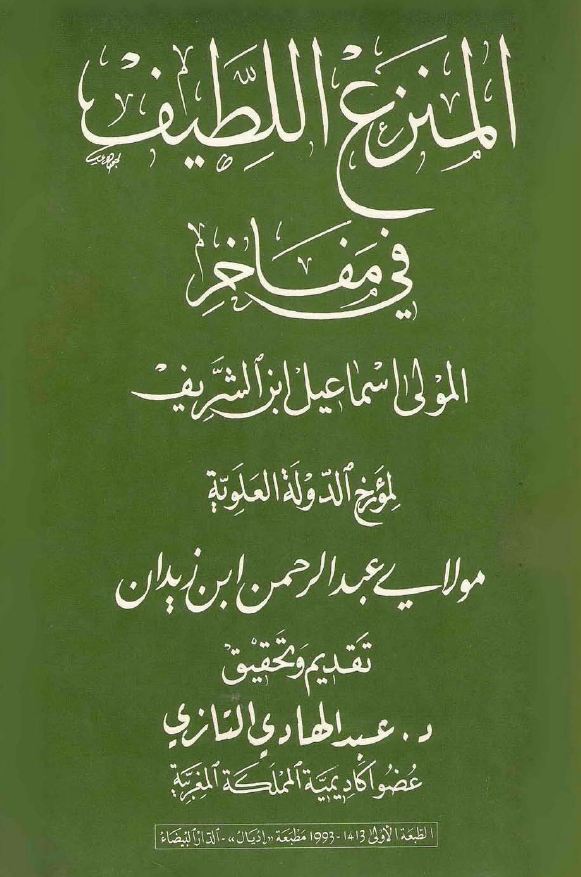 المنزع اللطيف
في مفاخر
المولى اسماعيل ابن الشريف
لمؤرخ الدولة العلوية
مولاي عبد الرحمن ابن زيدان
تقديم وتحقيق
د. عبد الهادي التازي
عضو أكاديمية المملكة المغربية
الطبعة الأولى 1413 - 1993 مطبعة «إديال» - الدار البيضاء